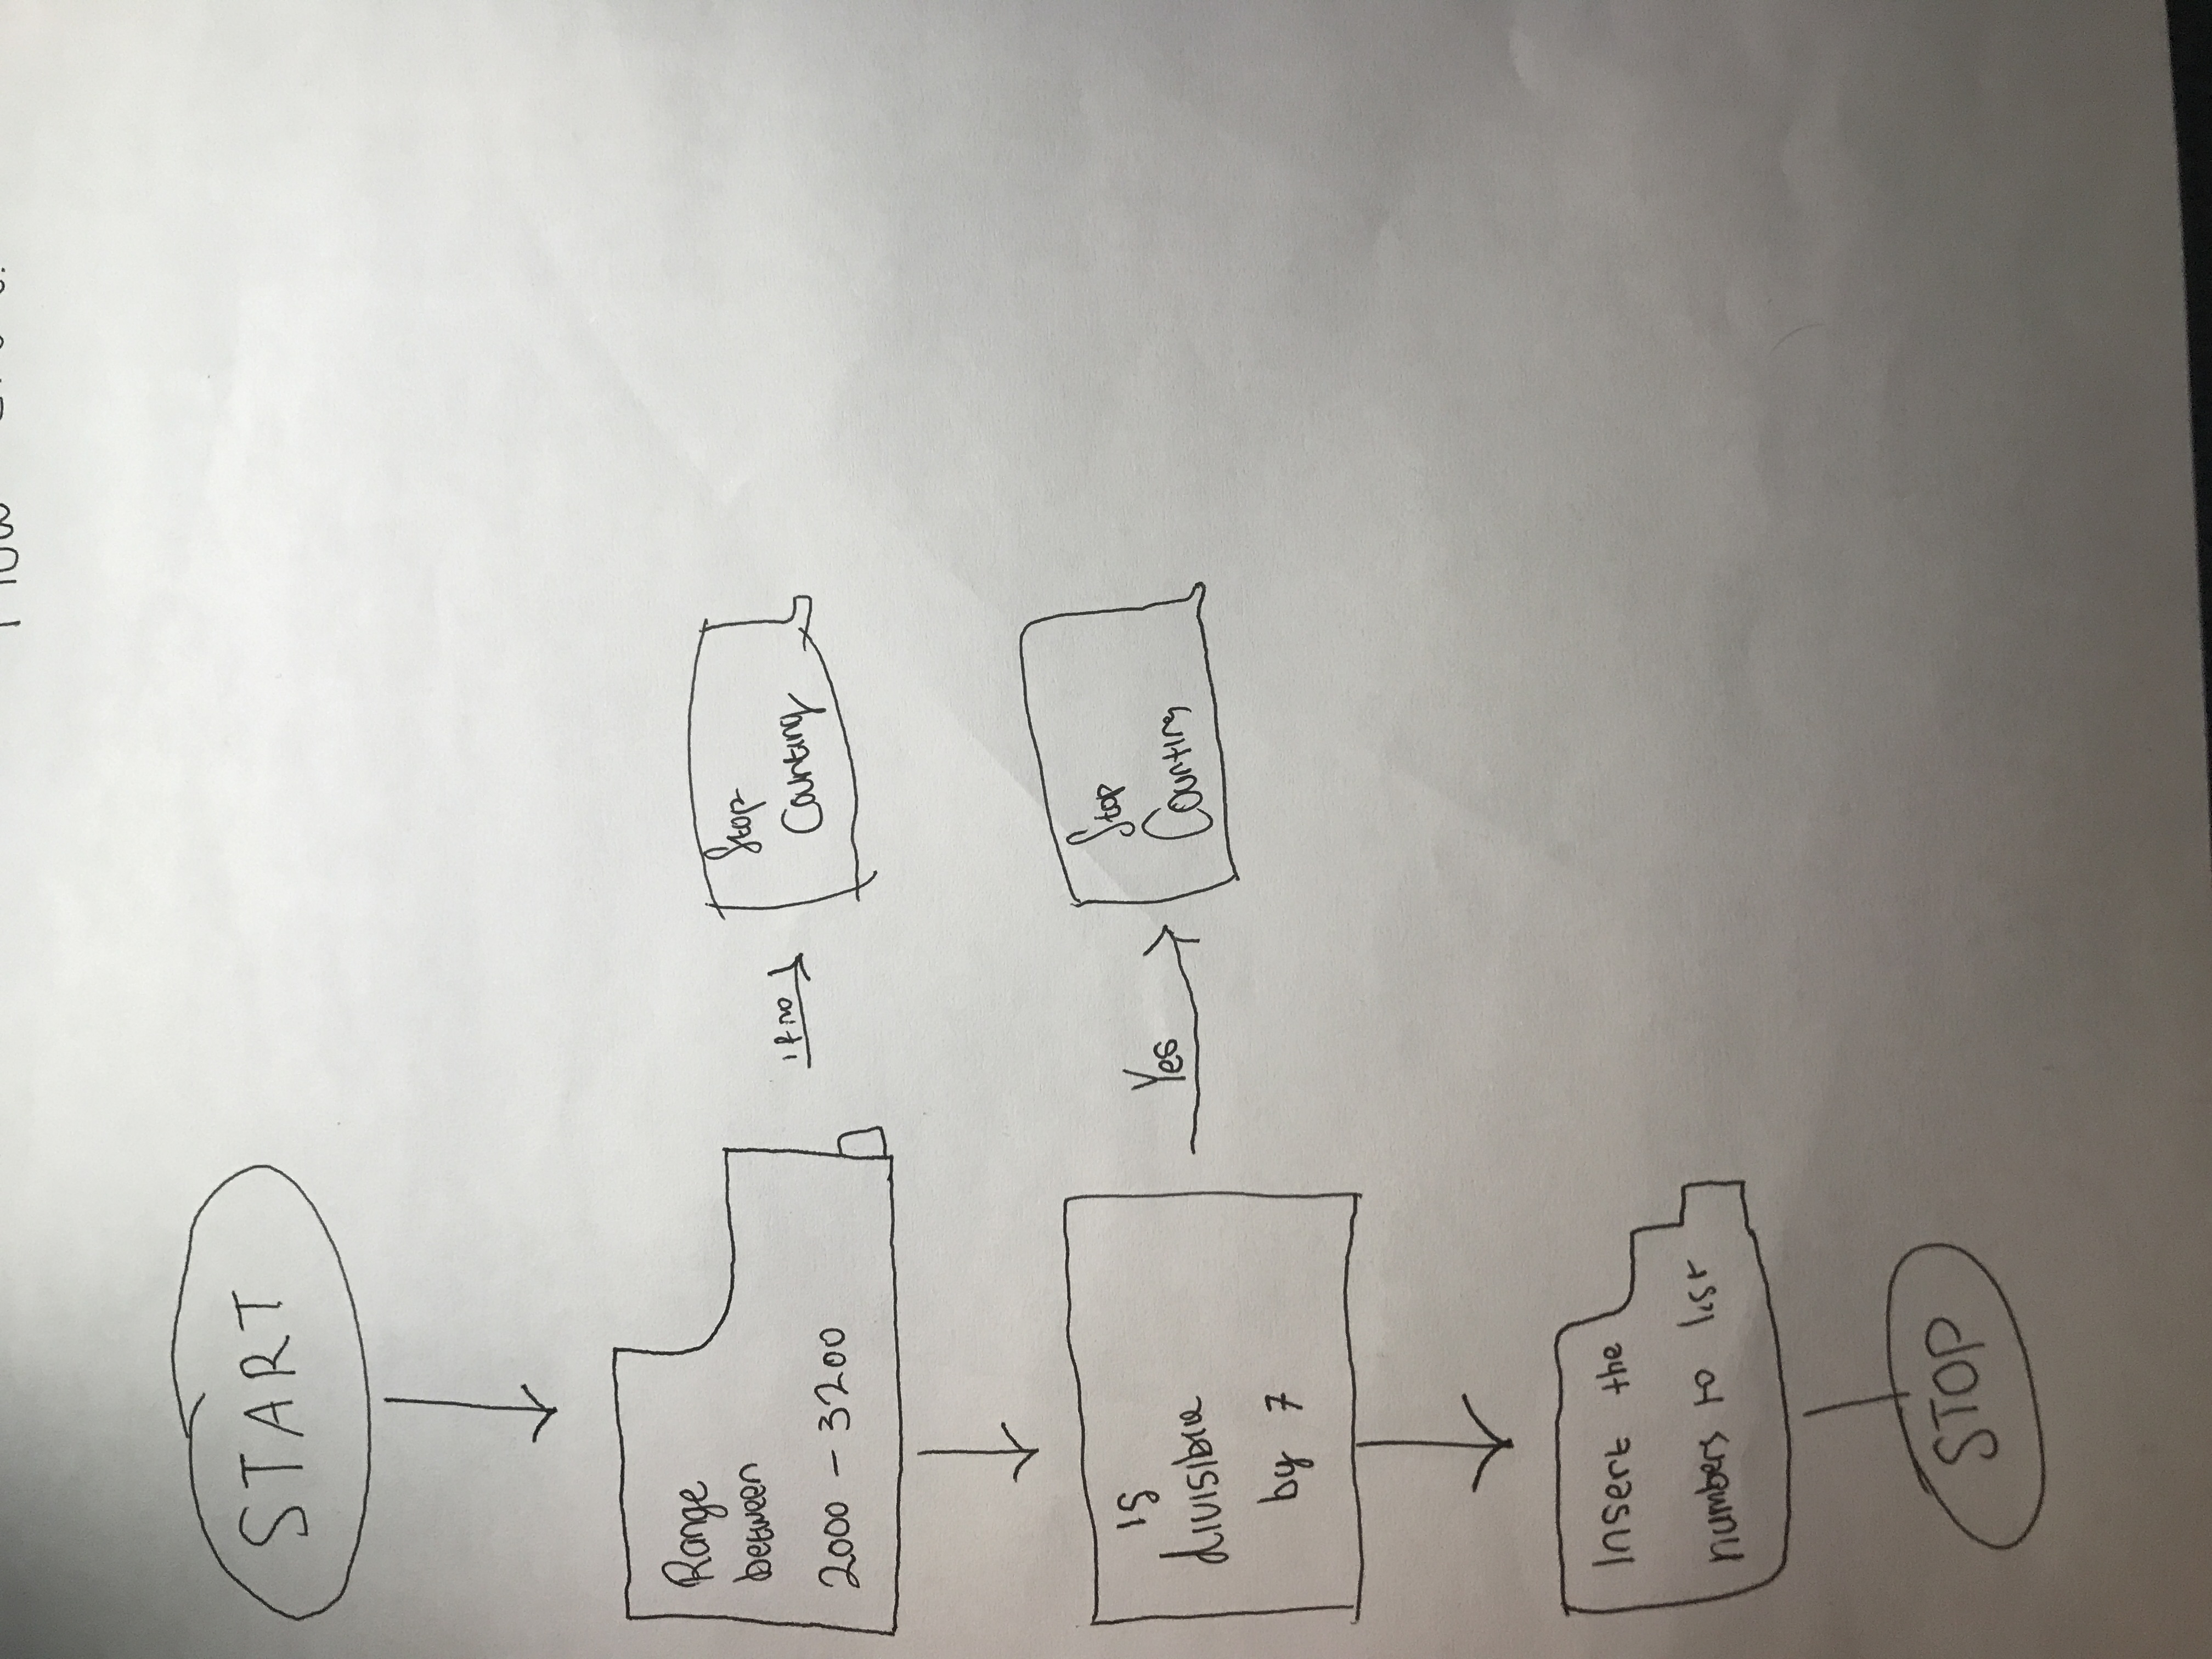 START
Range
between
2000 - 3200
if no
Stop
Counting
is
divisible
by 7
Yes
Stop
Counting
Insert the
numbers to list
STOP